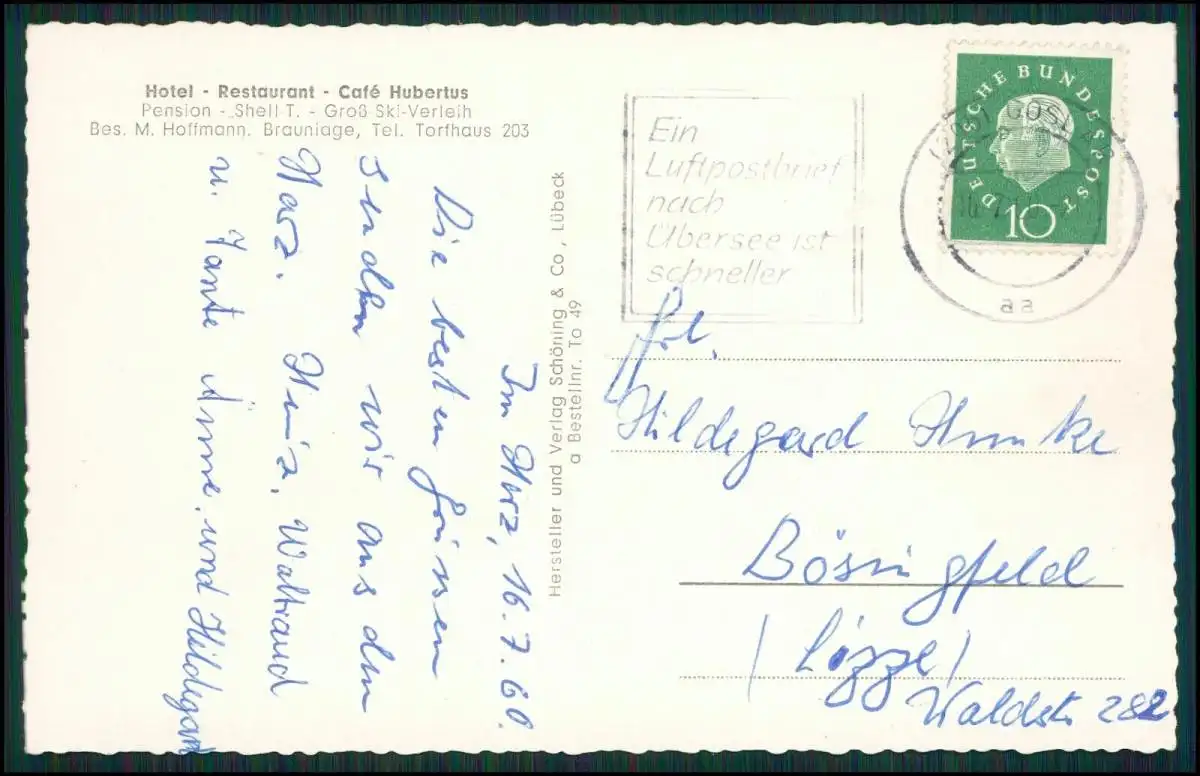 Hotel - Restaurant - Café Hubertus
Pension - „Shell T. - Groß Ski-Verleih
Bes. M. Hoffmann. Braunlage, Tel. Torfhaus 203
Im Harz, 16.7.60.
Die besten Grüssen
senden wir aus dem
Harz. Heinz, Waltraud
u. Tante Änne, und Hildegard
Hersteller und Verlag Schöning & Co, Lübeck
a Bestellnr. To 49
Ein
Luftpostbrief
nach
Übersee ist
schneller
DEUTSCHE BUNDESPOST
10
GOSLAR
aa
Frl.
Hildegard
Bösingfeld
(Lippe)
Waldstr 282